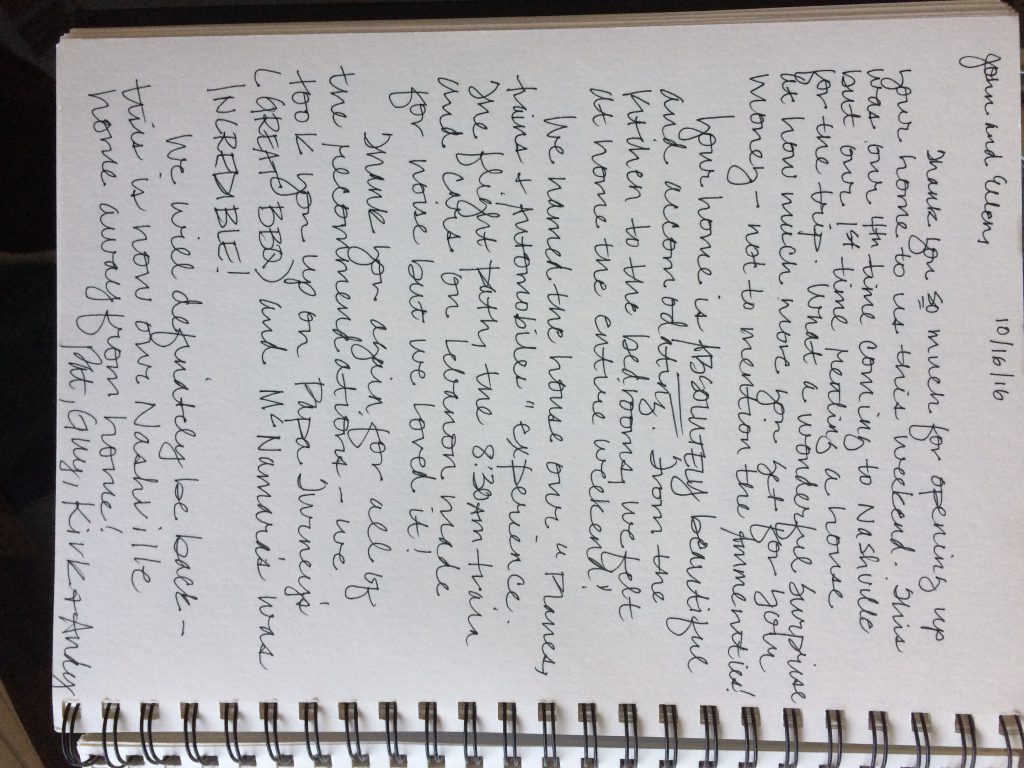 10/16/16
John and Ellen,
Thank you so much for opening up
your home to us this weekend. This
was our 4th time coming to Nashville
but our 1st time renting a house
for the trip. What a wonderful surprise
at how much more you get for your
money - not to mention the ammenoties!
Your home is ABSOUTELY beautiful
and accomodating. From the
kithen to the bedrooms, we felt
at home the entire weekend!
We named the house our "Planes,
trains & Automobiles" experience.
The flight path, the 8:30am train
and cars on Lebanon, made
for noise but we loved it!
Thank you again for all of
the recommendations - we
took you up on Papa Turney's
(GREAT BBQ) and McNamara's was
INCREDIBLE!
We will definately be back -
this is now our Nashville
home away from home!
Pat, Guy, Kirk & Andy